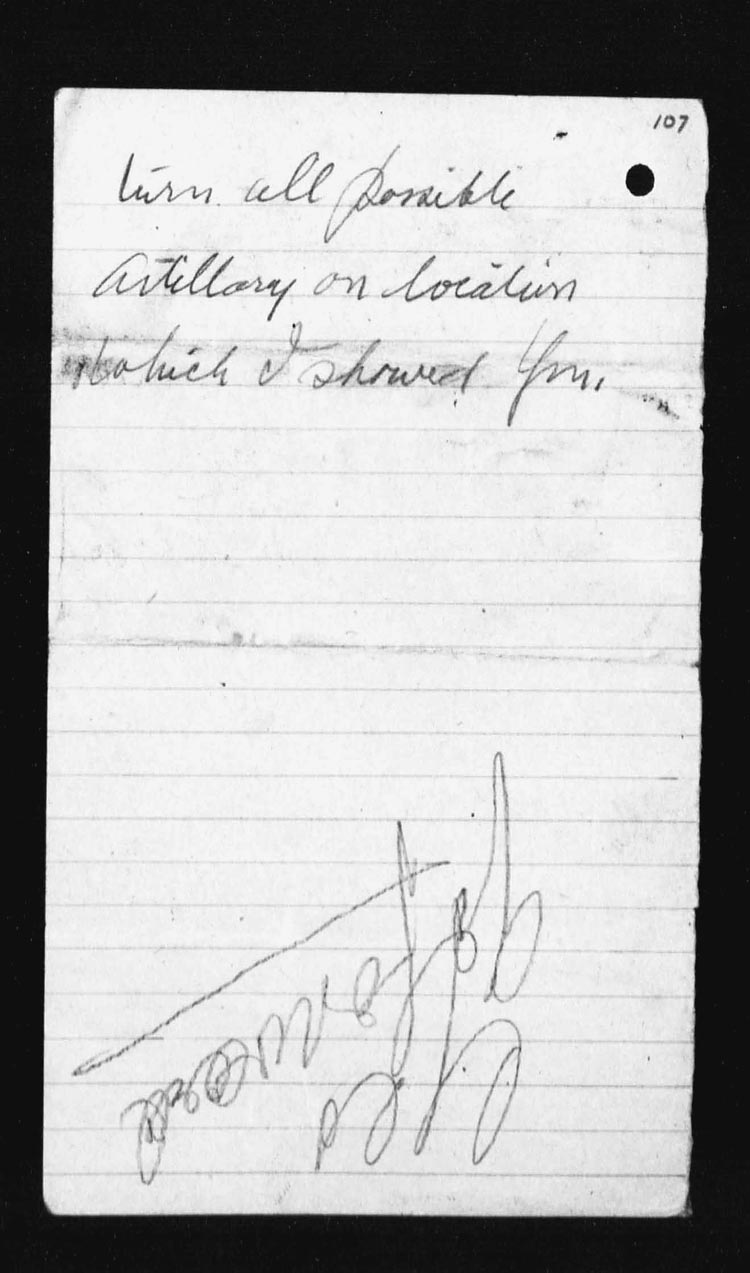 107
turn all possible
Artillary on location
which I showed You.